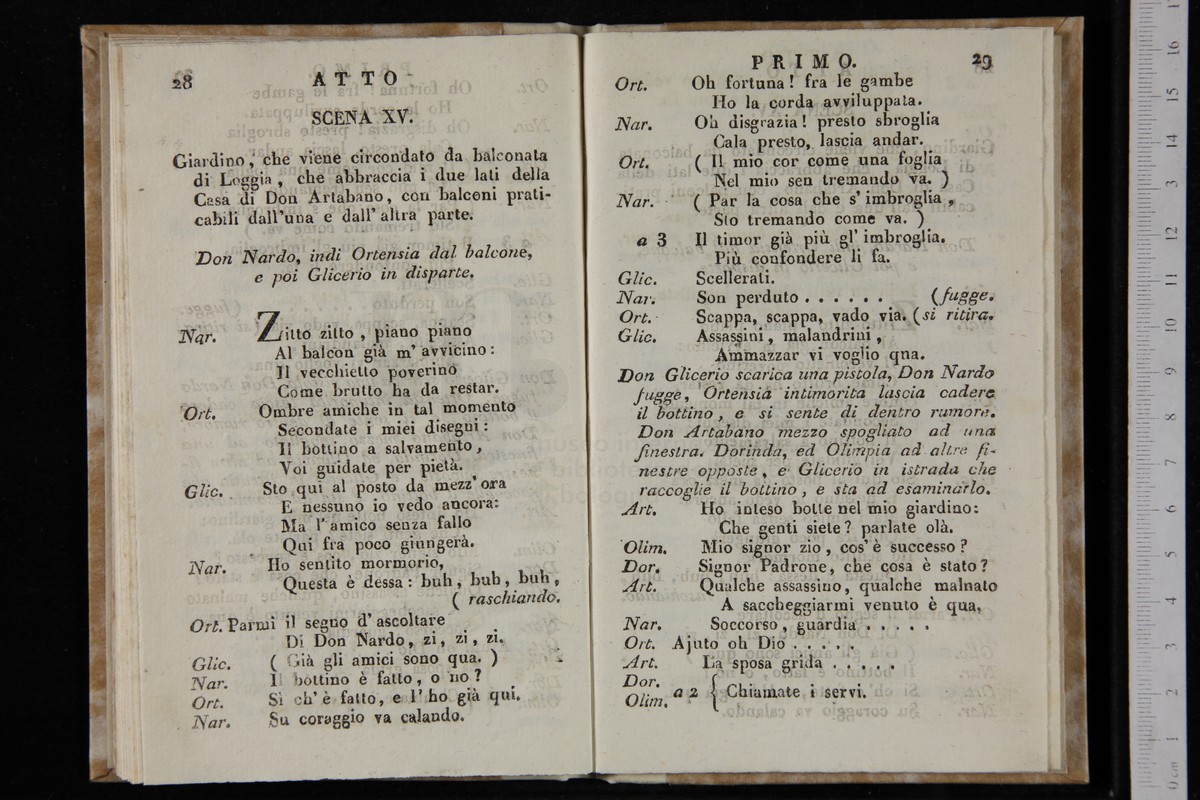 28 ATTO
SCENA XV.
Giardino, che viene circondato da balconata
di Loggia, che abbraccia i due lati della
Casa di Don Artabano, con balconi prati-
cabili dall'una e dall'altra parte.
Don Nardo, indi Ortensia dal balcone,
e poi Glicerio in disparte.
Nar. Zitto zitto, piano piano
Al balcon già m'avvicino:
Il vecchietto poverino
Come brutto ha da restar.
Ort. Ombre amiche in tal momento
Secondate i miei disegni:
Il bottino a salvamento,
Voi guidate per pietà.
Glic. Sto qui al posto da mezz'ora
E nessuno io vedo ancora:
Ma l'amico senza fallo
Qui fra poco giungerà.
Nar. Ho sentito mormorio,
Questa è dessa: buh, buh, buh,
( raschiando.
Ort. Parmi il segno d'ascoltare
Di Don Nardo, zi, zi, zi.
Glic. ( Già gli amici sono qua. )
Nar. Il bottino è fatto, o no?
Ort. Sì ch'è fatto, e l'ho già qui.
Nar. Su coraggio va calando.
PRIMO. 29
Ort. Oh fortuna! fra le gambe
Ho la corda avviluppata.
Nar. Oh disgrazia! presto sbroglia
Cala presto, lascia andar.
Ort. ( Il mio cor come una foglia
Nel mio sen tremando va. )
Nar. ( Par la cosa che s'imbroglia,
Sto tremando come va. )
a 3 Il timor già più gl'imbroglia.
Più confondere li fa.
Glic. Scellerati.
Nar. Son perduto . . . . . . (fugge.
Ort. Scappa, scappa, vado via. (si ritira.
Glic. Assassini, malandrini,
Ammazzar vi voglio qua.
Don Glicerio scarica una pistola, Don Nardo
fugge, Ortensia intimorita lascia cadere
il bottino, e si sente di dentro rumore.
Don Artabano mezzo spogliato ad una
finestra. Dorinda, ed Olimpia ad altre fi-
nestre opposte, e Glicerio in istrada che
raccoglie il bottino, e sta ad esaminarlo.
Art. Ho inteso botte nel mio giardino:
Che genti siete? parlate olà.
Olim. Mio signor zio, cos'è successo?
Dor. Signor Padrone, che cosa è stato?
Art. Qualche assassino, qualche malnato
A saccheggiarmi venuto è qua.
Nar. Soccorso, guardia . . . . .
Ort. Ajuto oh Dio . . . . .
Art. La sposa grida . . . . .
Dor.
Olim. a 2 { Chiamate i servi.